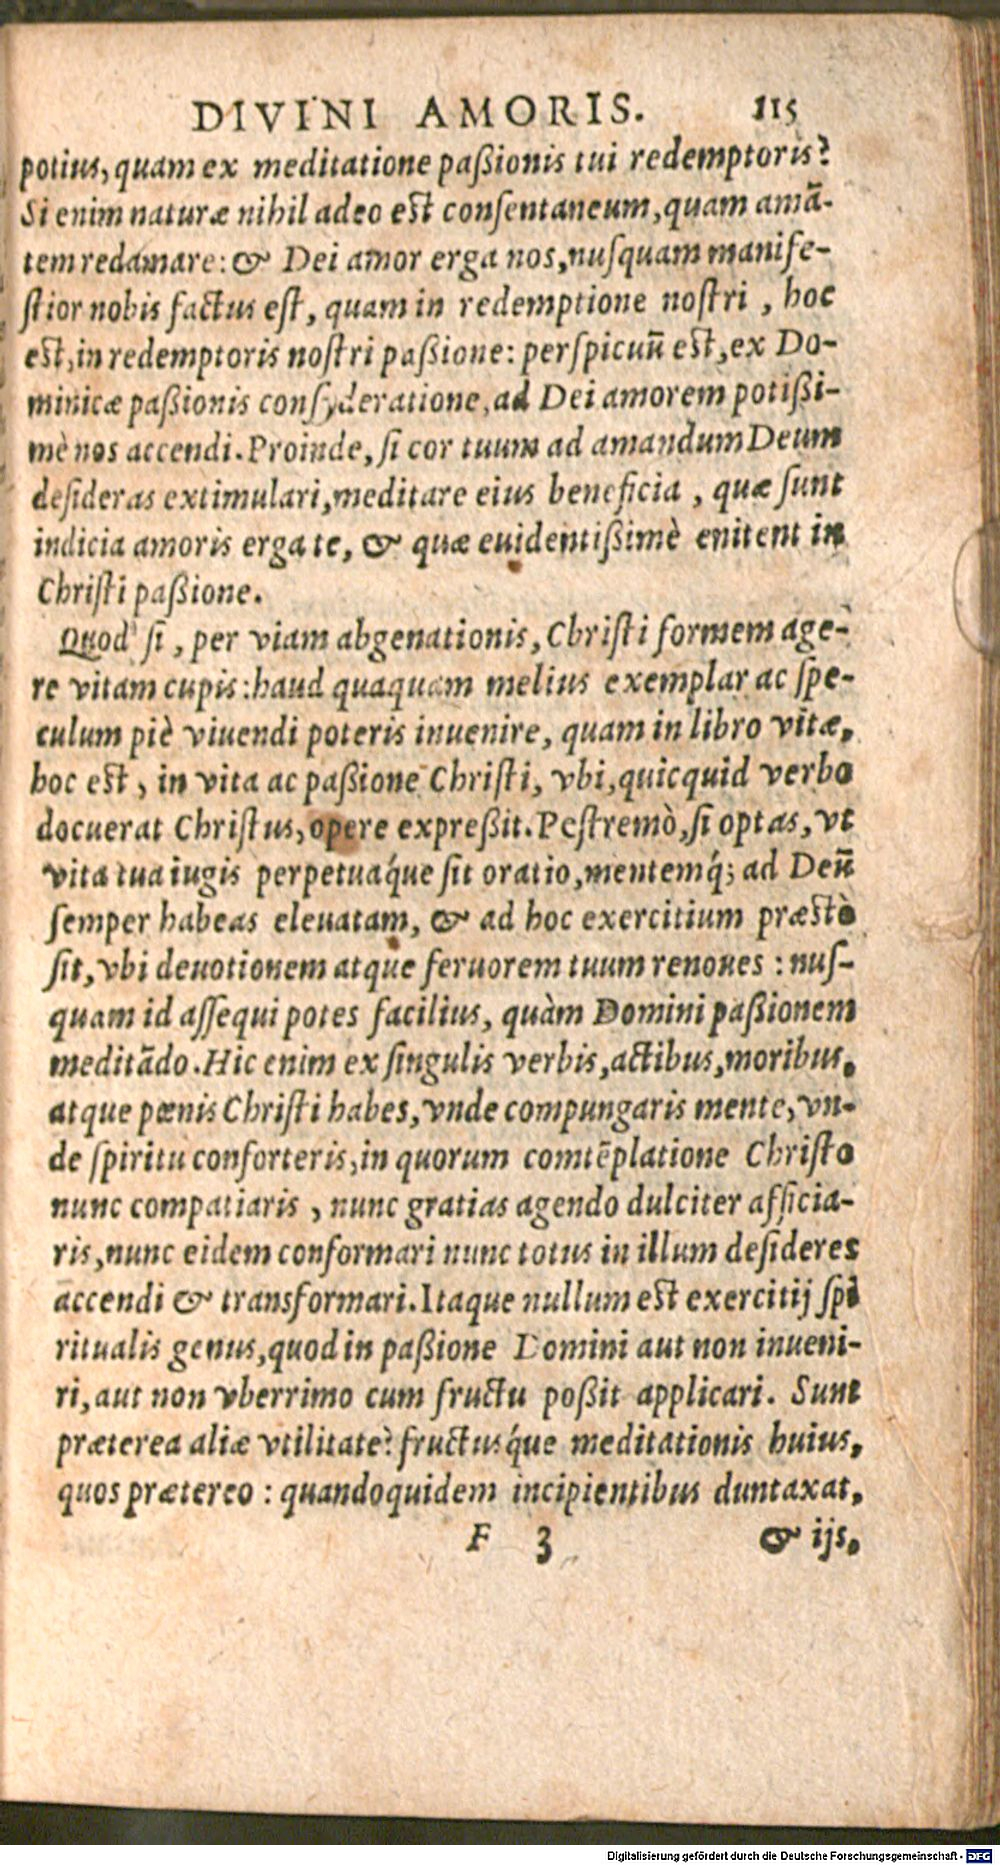 DIVINI AMORIS. 115
potius, quam ex meditatione paßionis tui redemptoris?
Si enim naturæ nihil adeo est consentaneum, quam amã-
tem redamare: & Dei amor erga nos, nusquam manife-
stior nobis factus est, quam in redemptione nostri, hoc
est, in redemptoris nostri paßione: perspicuũ est, ex Do-
minicæ paßionis consyderatione, ad Dei amorem potißi-
mè nos accendi. Proinde, si cor tuum ad amandum Deum
desideras extimulari, meditare eius beneficia, quæ sunt
indicia amoris erga te, & quæ euidentißimè enitent in
Christi paßione.
Quod si, per viam abgenationis, Christi formem age-
re vitam cupis: haud quaquam melius exemplar ac spe-
culum piè viuendi poteris inuenire, quam in libro vitæ,
hoc est, in vita ac paßione Christi, vbi, quicquid verbo
docuerat Christus, opere expreßit. Postremò, si optas, vt
vita tua iugis perpetuaq́ue sit oratio, mentemq́; ad Deũ
semper habeas eleuatam, & ad hoc exercitium præstò
sit, vbi deuotionem atque feruorem tuum renoues: nus-
quam id assequi potes facilius, quàm Domini paßionem
meditãdo. Hic enim ex singulis verbis, actibus, moribus,
atque pœnis Christi habes, vnde compungaris mente, vn-
de spiritu conforteris, in quorum comtẽplatione Christo
nunc compatiaris, nunc gratias agendo dulciter afficia-
ris, nunc eidem conformari nunc totus in illum desideres
accendi & transformari. Itaque nullum est exercitij spi
ritualis genus, quod in paßione Domini aut non inueni-
ri, aut non vberrimo cum fructu poßit applicari. Sunt
præterea aliæ vtilitates fructusq́ue meditationis huius,
quos prætereo: quandoquidem incipientibus duntaxat,
F 3 & ijs,
Digitalisierung gefördert durch die Deutsche Forschungsgemeinschaft - DFG